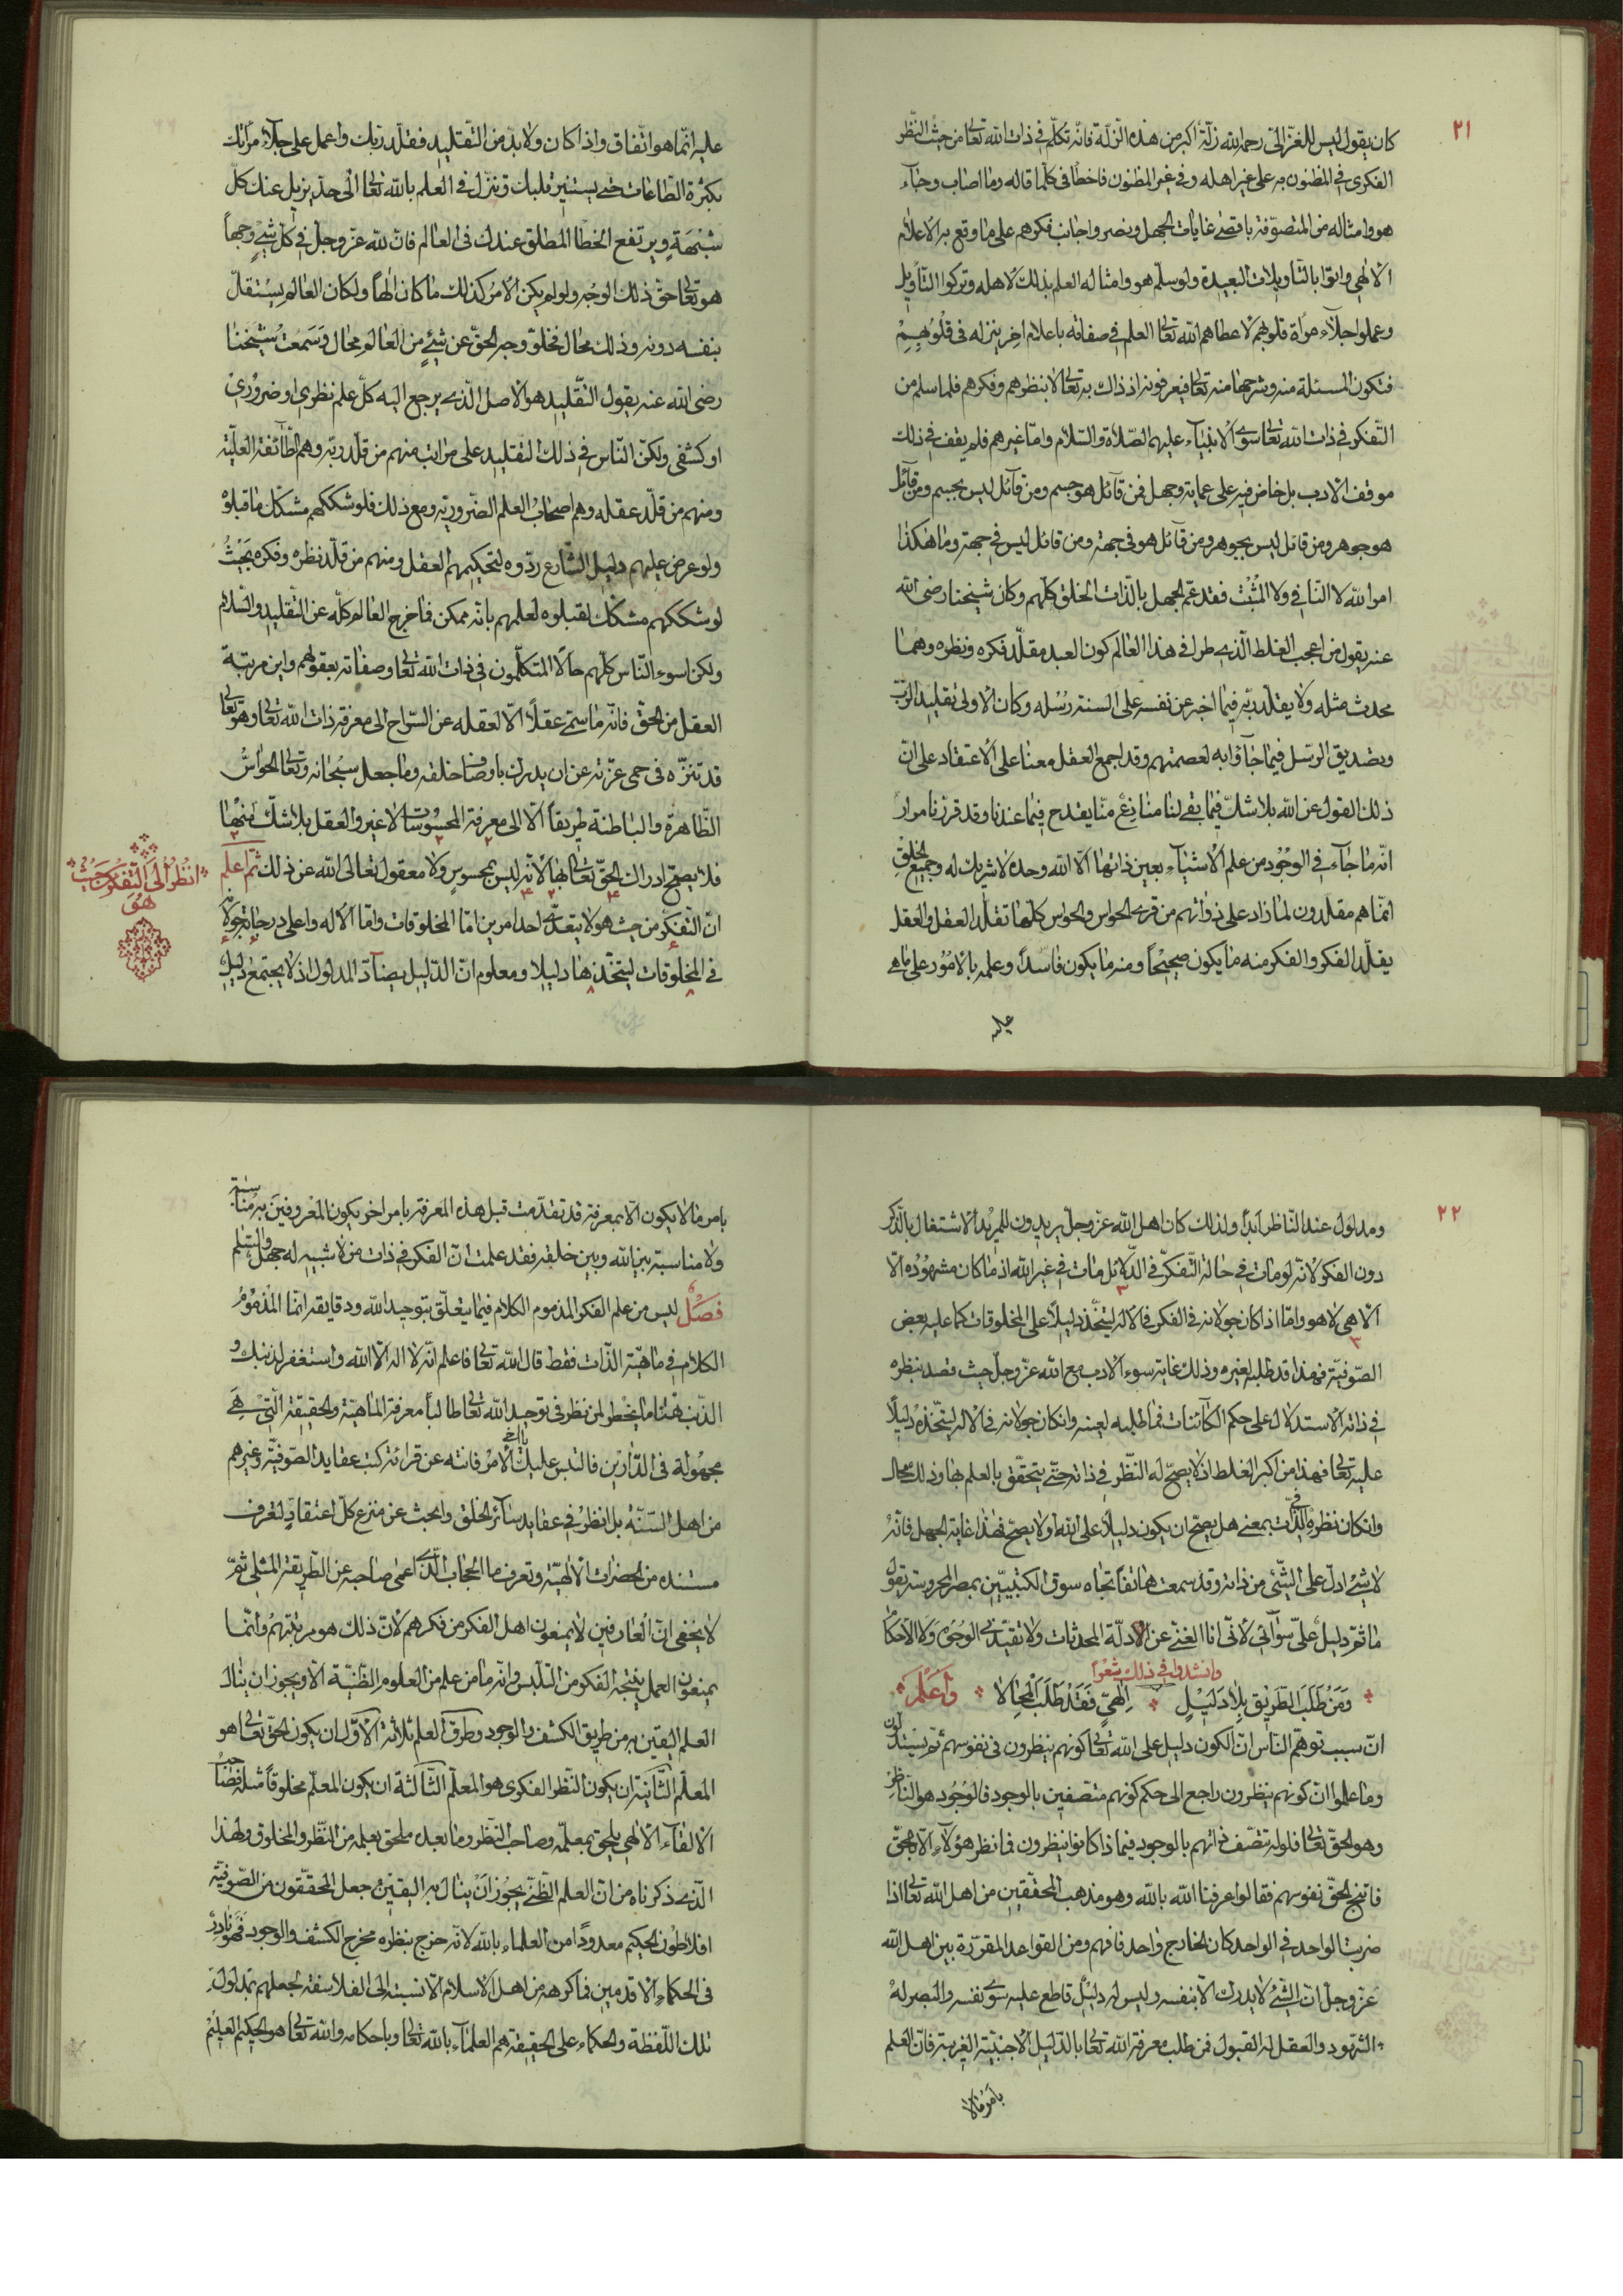 ٢١
كان يقول ليس للغزّالى رحمه الله زلّة اكبر من هذه الزّلة فانّه تكلّم فى ذات الله تعالى من حيث النّظر
الفكرى فى المظنون به على غير اهله وفى غير المظنون فاخطأ فى كلّما قاله وما اصاب وجآء
هو وامثاله من المتصوّفة باقصى غايات الجهل ونصروا جانب فكرهم على ما وقع به الاعلام
الالهى واتوا بالتّأويلات البعيدة ولو سلّم هو وامثاله العلم بذلك لاهله وتركوا التّأويل
وعملوا جلآء مرآة قلوبهم لاعطاهم الله تعالى العلم فى صفاته باعلام اخر ينزله فى قلوبهم
فتكون المسئلة منه وشرحها منه تعالى فيعرفونه اذ ذاك به تعالى لا بنظرهم وفكرهم فلما سلم من
التّفكر فى ذات الله تعالى سوى الانبيآء عليهم الصّلاة والسّلام وامّا غيرهم فلم يقف فى ذلك
موقف الادب بل خاض فيه على عماية وجهل فمن قآئل هو جسم ومن قآئل ليس بجسم ومن قآئل
هو جوهر ومن قائل ليس بجوهر ومن قآئل هو فى جهة ومن قائل ليس فى جهة وما هكذا
امر الله لا النّافى ولا المثبت فقد عمّ الجهل بالذّات الخلق كلّهم وكان شيخنا رضى الله
عنه يقول من اعجب الغلط الّذى طرا فى هذا العالم كون العبد مقلّد فكره ونظره وهما
محدث مثله ولا يقلّد ربّه فيما اخبر عن نفسه على السنة رسله وكان الاولى تقليد الرّبّ
وتصديق الرسل فيما جآؤا به لعصمتهم وقد اجمع العقل معنا على الاعتقاد على انّ
ذلك القول عن الله بلا شكّ فيما بقى لنا منازع منّا يقدح فيما عندنا وقد قررنا مرار
انّه ما جآء فى الوجود من علم الاشيآء بعين ذاتها الّا الله وحده لا شريك له وجميع الخلق
انّما هم مقلّدون لما زاد على ذواتهم من قوى الحواس والحواس كلّها تقلّد العقل والعقل
يقلّد الفكر والفكر منه ما يكون صحيحاً ومنه ما يكون فاسداً وعلمه بالامور على ما هى
عليه
عليه انّما هو اتّفاق واذا كان ولا بدّ من التّقليد فقلّد ربّك واعمل على جلآء مرآتك
بكثرة الطّاعات حتى يستنير قلبك وتنزل فى العلم بالله تعالى الى حدّ يزيل عنك كلّ
شبهة ويرتفع الخطأ المطلق عندك فى العالم فانّ لله عزّ وجلّ فى كلّ شئ وجهاً
هو تعالى حقّ ذلك الوجه ولو لم يكن الامر كذلك ما كان الهاً ولكان العالم يستقلّ
بنفسه دونه وذلك محال فخلوّ وجه الحقّ عن شئ من العالم محال وسمعت شيخنا
رضى الله عنه يقول التّقليد هو الاصل الّذى يرجع اليه كلّ علم نظرى او ضرورى
او كشفى ولكنّ النّاس فى ذلك التقليد على مراتب منهم من قلّد ربّه وهم الطّآئفة العليّة
ومنهم من قلّد عقله وهم اصحاب العلم الضّرورية ومع ذلك فلو شككهم مشكّك ما قبلوه
ولو عرض عليهم دليل الشّارع ردّوه لتحكيمهم العقل ومنهم من قلّد نظره وفكره بحيث
لو شككهم مشكّك لقبلوه لعلمهم بانّه ممكن فما خرج العالم كلّه عن التّقليد والسّلام
ولكن اسوء النّاس كلّهم حالًا المتكلّمون فى ذات الله تعالى وصفاته بعقولهم واين مرتبة
العقل من الحقّ فانّه ما سمّى عقلاً الّا لعقله عن السّراح الى معرفة ذات الله تعالى وهو تعالى
قد تنزّه فى حمى عزّته عن ان يدرك باوصاف خلقه وما جعل سبحانه وتعالى الحواسّ
الظّاهرة والباطنة طريقاً الّا الى معرفة المحسوسات لا غير والعقل بلا شكّ منها
فلا يصحّ ادراك الحقّ تعالى بها لانّه ليس بمحسوس ولا معقول تعالى الله عن ذلك ثمّ اعلم
انّ التّفكّر من حيث هو لا يتعدّى احد امرين امّا المخلوقات وامّا الاله واعلى درجاته جولانه
فى المخلوقات ليتّخذها دليلا ومعلوم انّ الدّليل يضآدّ المدلول اذ لا يجتمع دليل
انظر الى التّفكر من حيث
هو
٢٢
ومدلول عند النّاظر ابداً ولذلك كان اهل الله عزّ وجلّ يريدون للمريد الاشتغال بالذّكر
دون الفكر لانّه لو مات فى حالة التّفكّر فى الدّلائل مات فى غير الله اذ ما كان مشهوده الّا
الّا هى لا هو وامّا اذا كان جولانه فى الفكر فى الاله ليتّخذ دليلاً على المخلوقات كما عليه بعض
الصّوفيّة فهذا قد طلبه لغيره وذلك غاية سوء الادب مع الله عزّ وجلّ حيث قصد بنظره
فى ذاته الاستدلال على حكم الكآئنات فما طلبه لعينه وان كان جولانه فى الاله ليتّخذه دليلاً
عليه تعالى فهذا من اكبر الغلط اذ لا يصحّ له النّظر فى ذاته حتّى يتحقّق بالعلم بها وذلك محال
وان كان نظره فى الذّات بمعنى هل يصحّ ان يكون دليلاً على الله او لا يصحّ فهذا غاية الجهل فانّه
لا شئ ادلّ على الشّئ من ذاته وقد سمعت هاتفاً تجاه سوق الكتبيّين بمصر المحروسة يقول
ما ثمّ دليل علىّ سوآئى لانّى انا الغنى عن الادلّة المحدثات ولا تقيّدنى الوجوه ولا الاحكام
وانشدوا فى ذلك شعراً
ومن طلب الطّريق بلا دليل الهىّ فقد طلب المحالا واعلم
انّ سبب توهّم النّاس انّ الكون دليل على الله تعالى كونهم ينظرون فى نفوسهم ثمّ يستدلّون
وما علموا انّ كونهم ينظرون راجع الى حكم كونهم متّصفين بالوجود فالوجود هو النّاظر
وهو الحقّ تعالى فلو لم تتّصف ذاتهم بالوجود فيما ذا كانوا ينظرون فما نظر هؤلآء الّا بالحقّ
فانتج الحقّ نفوسهم فقالوا عرفنا الله بالله وهو مذهب المحقّقين من اهل الله تعالى اذا
ضربت الواحد فى الواحد كان الخارج واحد فافهم ومن القواعد المقرّرة بين اهل الله
عزّ وجلّ انّ الشّئ لا يدرك الّا بنفسه وليس له دليل قاطع عليه سوى نفسه والبصر له
الشّهود والعقل له القبول فمن طلب معرفة الله تعالى بالدّليل الاجنبيّة الغريبة فانّ العلم
بامر ما لا
بامر ما لا يكون الّا بمعرفة قد تقدّمت قبل هذه المعرفة بامر اخر يكون المعروفين به مناسبة
ولا مناسبة بين الله وبين خلقه فقد علمت انّ الفكر فى ذات من لا شبيه له جهل والسّلم
فصل ليس من علم الفكر المذموم الكلام فيما يتعلّق بتوحيد الله ودقايقه انّما المذموم
الكلام فى ماهيّة الذّات فقط قال الله تعالى فاعلم انّه لا اله الّا الله واستغفر لذنبك و
الذّنب هنا ما يخطر لمن نظر فى توحيد الله تعالى طالباً معرفة الماهيّة والحقيقة الّتى هى
مجهولة فى الدّارين فالتبس عليك الامر فانته عن قرائة كتب عقايد الصّوفيّة وغيرهم
من اهل السّنّة بل انظر فى عقايد سآئر الخلق وابحث عن منزع كلّ اعتقاد لتعرف
مستنده من الحضرات الالهيّة وتعرف ما الحجاب الّذى اعمى صاحبه عن الطّريقة المثلى ثمّ
لا يخفى انّ العارفين لا يمنعون اهل الفكر من فكرهم لانّ ذلك هو مرتبتهم وانّما
يمنعون العمل بنتيجة الفكر من التلبّس وانّه ما من علم من العلوم الظّنيّة الّا ويجوز ان ينال
العلم اليقين به من طريق الكشف والوجود وطرق العلم ثلاثة الاوّل ان يكون الحقّ تعالى هو
المعلّم الثّانية ان يكون النّظر الفكرى هو المعلّم الثّالثة ان يكون المعلّم مخلوقاً مثله فصاحب
الالقآء الالهى يلحق بمعلّمه وصاحب النّظر وما بعده ملحق بعلمه من النّظر والمخلوق ولهذا
الّذى ذكرناه من انّ العلم الظّنّى يجوز ان ينال به اليقين جعل المحقّقون من الصّوفيّة
افلاطون الحكيم معدوداً من العلماء بالله لانّه خرج بنظره مخرج الكشف والوجود فهو نادر
فى الحكماء الاقدمين فما كرهه من اهل الاسلام الّا نسبته الى الفلاسفة لجهلهم بمدلول
تلك اللّفظة والحكماء على الحقيقة هم العلمآء بالله تعالى وباحكامه والله تعالى هو الحكيم العليم